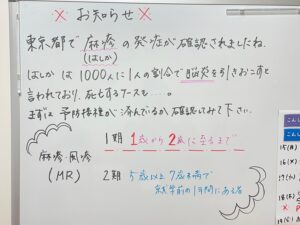 × お知らせ ×
東京都で麻疹の発症が確認されましたね。
(はしか)
はしかは1000人に1人の割合で脳炎を引きおこすと
言われており、死亡するケースも…。
まずは予防接種が済んでいるか確認してみて下さい。
麻疹・風疹
(MR)
1期 1歳から2歳に至るまで
2期 5歳以上7歳未満で
就学前の1年間にある者
こんし
15(月)
16(火)